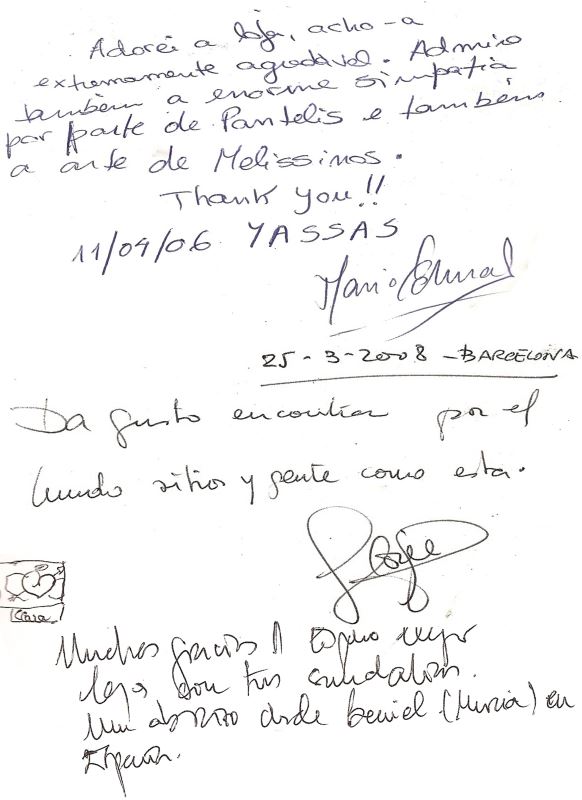 Adorei a loja, acho-a
extremamente agradável. Admiro
também a enorme simpatia
por parte de Pantelis e também
a arte de Melissinos.
Thank you!!
11/04/06 YASSAS
Mario
25-3-2008 - BARCELONA
Da gusto encontrar por el
mundo sitios y gente como esta.
Casa
Muchas gracias!! Espero llegar
lejos con tus sandalias.
Un abrazo desde Beniel (Murcia) en
España.